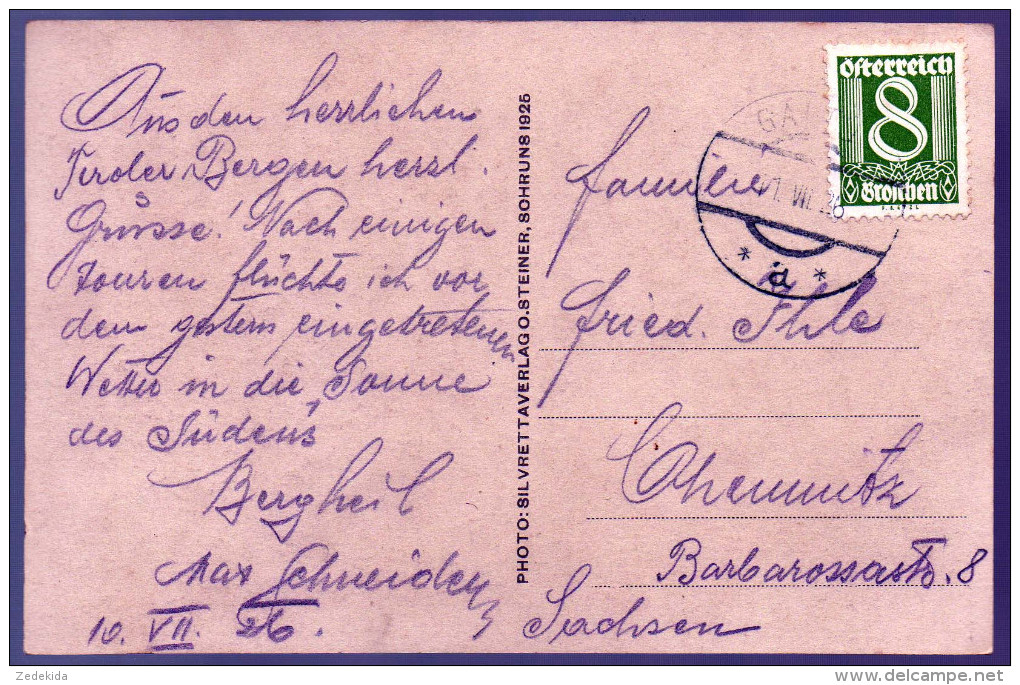 Aus den herrlichen
Tiroler Bergen herzl.
Grüsse! Nach einigen
Touren flüchte ich vor
dem gestern eingetretenen
Wetter in die „Sonne
des Südens“
Bergheil
Max Schneider
10. VII. 26.
PHOTO: SILVRETTAVERLAG O. STEINER, SCHRUNS 1925
Österreich
8
Groschen
VII. 26
* a *
Familie
Fried. Ihle
Chemnitz
Barbarossastr. 8
Sachsen
Zedekida
delcampe.net